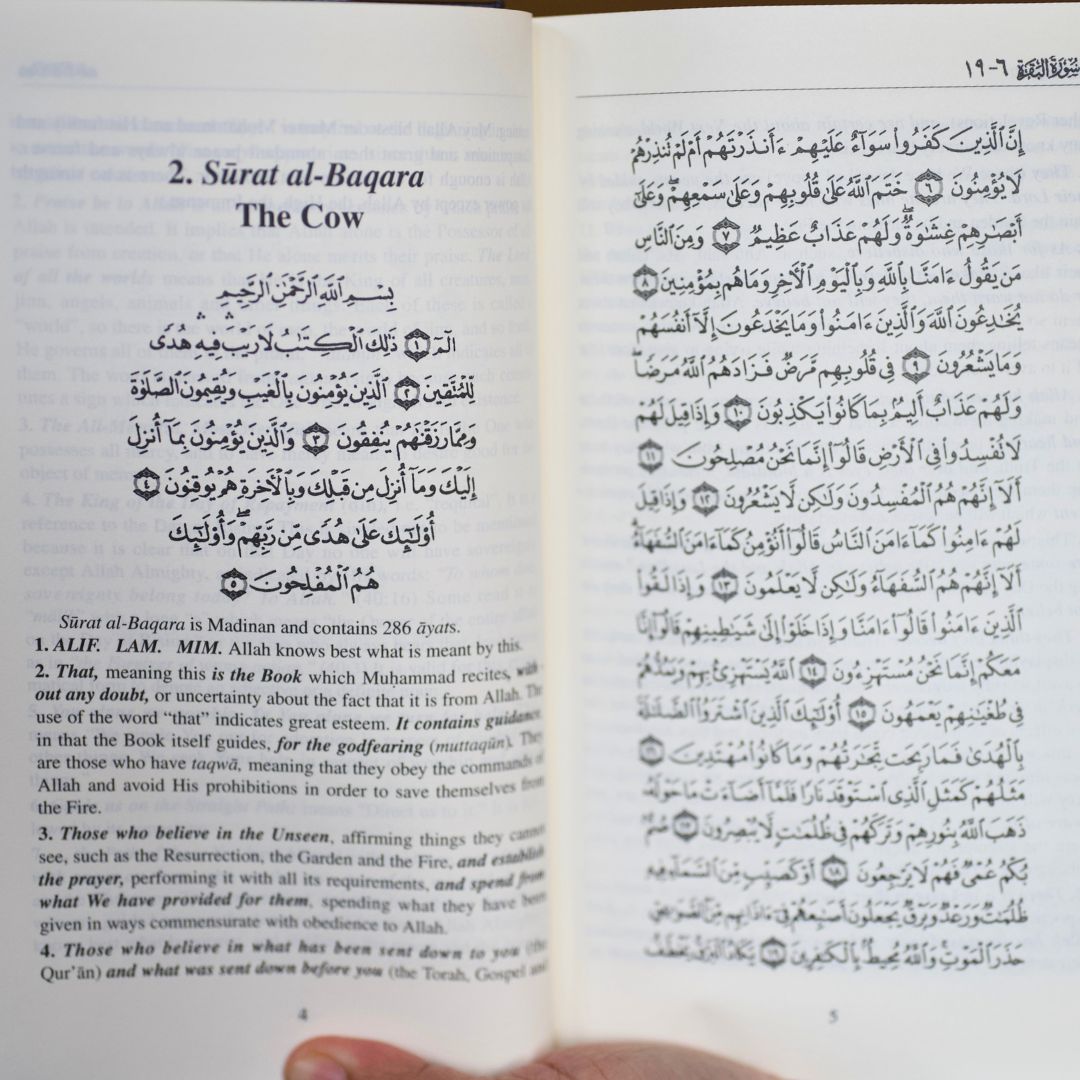 2. Sūrat al-Baqara
The Cow
بِسْمِ ٱللَّهِ ٱلرَّحْمَٰنِ ٱلرَّحِيمِ
الٓمٓ ١ ذَٰلِكَ ٱلْكِتَٰبُ لَا رَيْبَ ۛ فِيهِ ۛ هُدًى
لِّلْمُتَّقِينَ ٢ ٱلَّذِينَ يُؤْمِنُونَ بِٱلْغَيْبِ وَيُقِيمُونَ ٱلصَّلَوٰةَ
وَمِمَّا رَزَقْنَٰهُمْ يُنفِقُونَ ٣ وَٱلَّذِينَ يُؤْمِنُونَ بِمَآ أُنزِلَ
إِلَيْكَ وَمَآ أُنزِلَ مِن قَبْلِكَ وَبِٱلْأَخِرَةِ هُمْ يُوقِنُونَ ٤
أُو۟لَٰٓئِكَ عَلَىٰ هُدًى مِّن رَّبِّهِمْ ۖ وَأُو۟لَٰٓئِكَ
هُمُ ٱلْمُفْلِحُونَ ٥
Sūrat al-Baqara is Madinan and contains 286 āyats.
1. ALIF. LAM. MIM. Allah knows best what is meant by this.
2. That, meaning this is the Book which Muḥammad recites, with-
out any doubt, or uncertainty about the fact that it is from Allah. The
use of the word “that” indicates great esteem. It contains guidance
in that the Book itself guides, for the godfearing (muttaqūn). They
are those who have taqwā, meaning that they obey the commands of
Allah and avoid His prohibitions in order to save themselves from
the Fire.
3. Those who believe in the Unseen, affirming things they cannot
see, such as the Resurrection, the Garden and the Fire, and establish
the prayer, performing it with all its requirements, and spend from
what We have provided for them, spending what they have been
given in ways commensurate with obedience to Allah.
4. Those who believe in what has been sent down to you (the
Qur’ān) and what was sent down before you (the Torah, Gospel and
4
سُورَةُ البَقَرَة ٦-١٩
إِنَّ ٱلَّذِينَ كَفَرُوا۟ سَوَآءٌ عَلَيْهِمْ ءَأَنذَرْتَهُمْ أَمْ لَمْ تُنذِرْهُمْ
لَا يُؤْمِنُونَ ٦ خَتَمَ ٱللَّهُ عَلَىٰ قُلُوبِهِمْ وَعَلَىٰ سَمْعِهِمْ ۖ وَعَلَىٰٓ
أَبْصَٰرِهِمْ غِشَٰوَةٌ ۖ وَلَهُمْ عَذَابٌ عَظِيمٌ ٧ وَمِنَ ٱلنَّاسِ
مَن يَقُولُ ءَامَنَّا بِٱللَّهِ وَبِٱلْيَوْمِ ٱلْأَخِرِ وَمَا هُم بِمُؤْمِنِينَ ٨
يُخَٰدِعُونَ ٱللَّهَ وَٱلَّذِينَ ءَامَنُوا۟ وَمَا يَخْدَعُونَ إِلَّآ أَنفُسَهُمْ
وَمَا يَشْعُرُونَ ٩ فِى قُلُوبِهِم مَّرَضٌ فَزَادَهُمُ ٱللَّهُ مَرَضًا ۖ
وَلَهُمْ عَذَابٌ أَلِيمٌۢ بِمَا كَانُوا۟ يَكْذِبُونَ ١٠ وَإِذَا قِيلَ لَهُمْ
لَا تُفْسِدُوا۟ فِى ٱلْأَرْضِ قَالُوٓا۟ إِنَّمَا نَحْنُ مُصْلِحُونَ ١١
أَلَآ إِنَّهُمْ هُمُ ٱلْمُفْسِدُونَ وَلَٰكِن لَّا يَشْعُرُونَ ١٢ وَإِذَا قِيلَ
لَهُمْ ءَامِنُوا۟ كَمَآ ءَامَنَ ٱلنَّاسُ قَالُوٓا۟ أَنُؤْمِنُ كَمَآ ءَامَنَ ٱلسُّفَهَآءُ ۗ
أَلَآ إِنَّهُمْ هُمُ ٱلسُّفَهَآءُ وَلَٰكِن لَّا يَعْلَمُونَ ١٣ وَإِذَا لَقُوا۟
ٱلَّذِينَ ءَامَنُوا۟ قَالُوٓا۟ ءَامَنَّا وَإِذَا خَلَوْا۟ إِلَىٰ شَيَٰطِينِهِمْ قَالُوٓا۟ إِنَّا
مَعَكُمْ إِنَّمَا نَحْنُ مُسْتَهْزِءُونَ ١٤ ٱللَّهُ يَسْتَهْزِئُ بِهِمْ وَيَمُدُّهُمْ
فِى طُغْيَٰنِهِمْ يَعْمَهُونَ ١٥ أُو۟لَٰٓئِكَ ٱلَّذِينَ ٱشْتَرَوُا۟ ٱلضَّلَٰلَةَ
بِٱلْهُدَىٰ فَمَا رَبِحَت تِّجَٰرَتُهُمْ وَمَا كَانُوا۟ مُهْتَدِينَ ١٦
مَثَلُهُمْ كَمَثَلِ ٱلَّذِى ٱسْتَوْقَدَ نَارًا فَلَمَّآ أَضَآءَتْ مَا حَوْلَهُۥ
ذَهَبَ ٱللَّهُ بِنُورِهِمْ وَتَرَكَهُمْ فِى ظُلُمَٰتٍ لَّا يُبْصِرُونَ ١٧ صُمٌّۢ
بُكْمٌ عُمْىٌ فَهُمْ لَا يَرْجِعُونَ ١٨ أَوْ كَصَيِّبٍ مِّنَ ٱلسَّمَآءِ فِيهِ
ظُلُمَٰتٌ وَرَعْدٌ وَبَرْقٌ يَجْعَلُونَ أَصَٰبِعَهُمْ فِىٓ ءَاذَانِهِم مِّنَ ٱلصَّوَٰعِقِ
حَذَرَ ٱلْمَوْتِ ۚ وَٱللَّهُ مُحِيطٌۢ بِٱلْكَٰفِرِينَ ١٩ يَكَادُ ٱلْبَرْقُ يَخْطَفُ
5